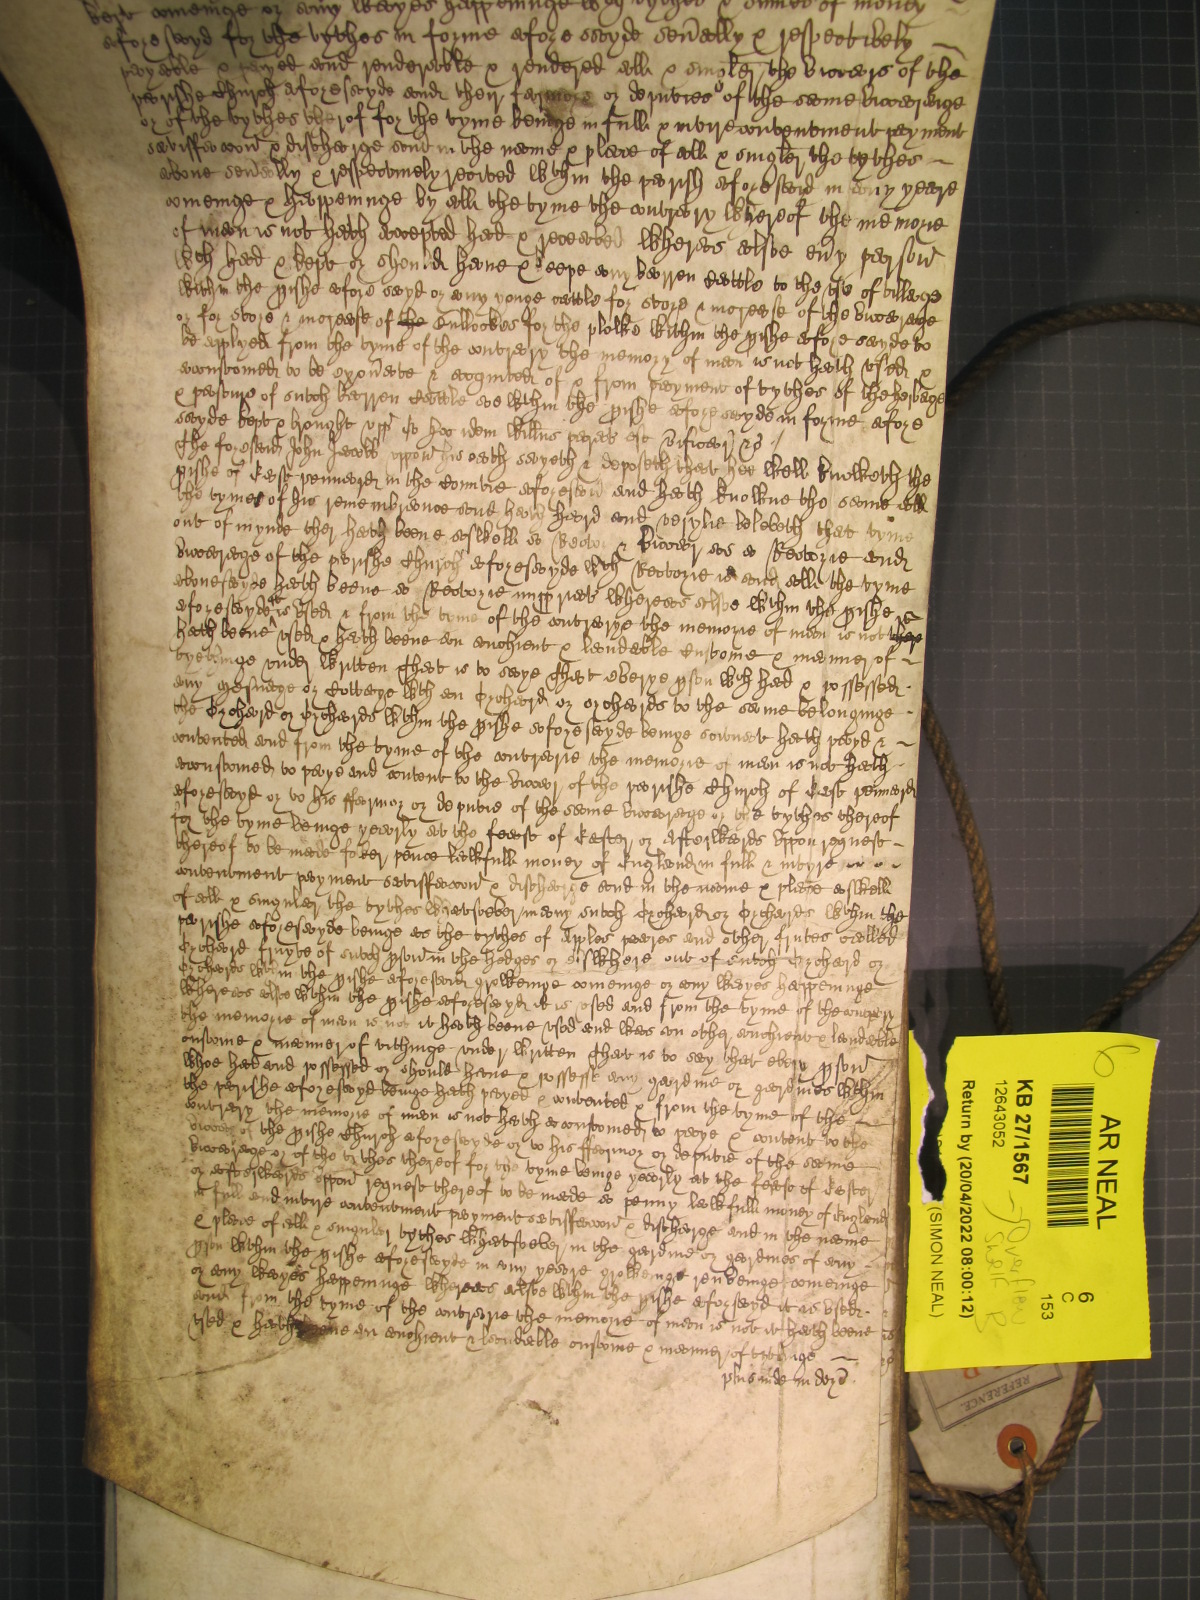 kept comeinge or any wayes happeninge wch tythes & summes of money
aforesayd for the tythes in forme aforesayde seu'ally & respectively
payable & payed and renderable & rendered all & singler the vicars of the
parishe Church aforesayde and their farmors or deputies of the same vicarage
or of the tythes therof for the tyme beinge in full & intire contentment payment
satisfaccon & discharge and in the name & place of all & singler the tythes
aboue seu'ally & respectiuely recited wthin the parish aforesaid in any yeare
comeinge & happeninge by all the tyme the contrary whereof the memorie
of man is not hath accepted had & receaved whereas alsoe eu'y parson
wch had & kept or should haue & keepe any barren cattle to the use of tillage
within the pishe afore sayd or any yonge cattle for store & increase of the vicarage
or for store & increase of the bullockes for the plowe within the pishe afore sayde to
be applyed from the tyme of the contrary the memory of man is not hath used &
accustomed to be exon'ate & acquited of & from payment of tythes of the herbage
& pasture of sutch barren cattle soe wthin the pishe aforesayde in forme afore
sayde kept & brought upp Et hoc idem Willus parat est v'ificare &c
The foresaid John Jacobb uppon his oath sayeth & deposeth that hee well knoweth the
pishe of East pennard in the Countie aforesaid and hath knowne the same all
the tyme of his remembrance and hath heard and verylie beleveth that tyme
out of mynde ther hath beene aswell a Rector & Vicar as a Rectorie and
vicarage of the parishe Church aforesayde wch Rectorie is and all the tyme
abouesayde hath beene a Rectorie impp'iat whereas alsoe within the pishe
aforesayde it is used & from the tyme of the contrarye the memorie of man is not ther
hath beene used & hath beene an anchient & laudable Custome & manner of
tythinge under written That is to saye That everye pson wch had & possessed
any mesuage or Cottage wth an Orchard or orchards to the same belonginge
the Orchard or Orchards wthin the pishe aforesayde beinge scituat hath payd &
contented and from the tyme of the contrarie the memorie of man is not hath
accustomed to paye and content to the vicar of the parishe Church of East pennard
aforesayd or to his ffarmor or deputie of the same vicarage or the tythes thereof
for the tyme beinge yearly at the feast of Easter or Afterwards uppon request
thereof to be made fower pence lawfull money of England in full & intyre
contentment payment satisfaccon & discharge and in the name & place aswell
of all & singuler the tythes whatsoever in any sutch Orchard or Orchards within the
parishe aforesayde beinge as the tythes of Apples peares and other frutes called
Orchard fruyte of sutch pson in the hedges or elswhere out of sutch Orchard or
Orchards wthin the pishe aforesaid groweinge comeinge or any wayes happeninge
whereas alsoe within the pishe aforesayd it is used and from the tyme of the contrary
the memorie of man is not it hath beene used and was an other anchient & laudable
custome & manner of tithinge under written That is to say that every pson
whoe had and possessed or should haue & possesse any gardine or gardines within
the parishe aforesayd beinge hath payed & contented & from the tyme of the
contrary the memorie of man is not hath accustomed to paye & content to the
vicar of the pishe Church aforesayde or to his ffarmor or deputie of the same
vicarage or of the tythes thereof for the tyme beinge yearly at the feast of Easter
or afterwards uppon request thereof to be made a penny lawfull money of England
in full and intire contentment payment satisfaccon & discharge and in the name
& place of all & singuler tythes whatsoever in the gardine or gardines of any
pson within the pishe aforesayde in any yeare groweinge renewinge comeinge
or any wayes happeninge whereas alsoe within the pishe aforesayd it is used
and from the tyme of the contrarie the memorie of man is not it hath beene
used & hath beene an anchient & laudable custome & manner of tithinge
plus inde in dorso
AR NEAL
6
C
153
KB 27/1567
12643052
Return by (20/04/2022 08:00:12)
(SIMON NEAL)
6
Overflow
Shelf B
REFERENCE.